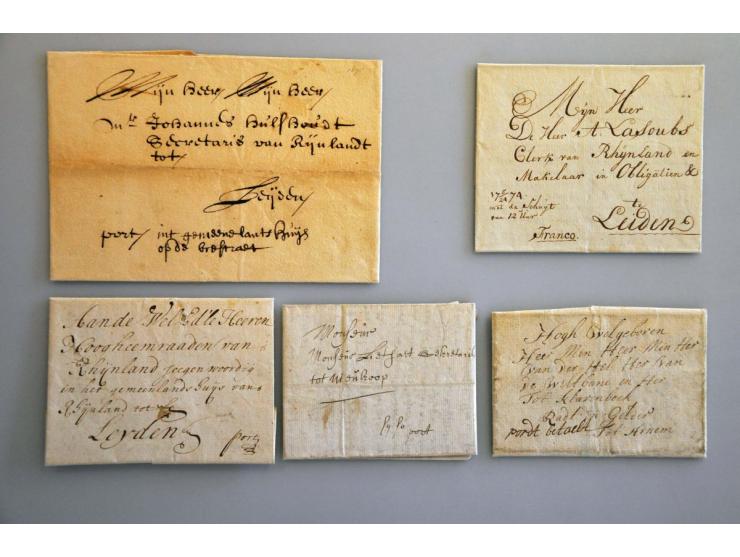 Mijn heer Mijn heer
Mr Johannes hulshoudt
Secretaris van Rijnlandt
tot
Leijden
port int gemeenelants huijs
op de brestraet
Mÿn Heer
De Heer A Lasoubs
Clerk van Rhÿnland en
Makelaar in Obligatien &
te
1774
met de Schuyt
van 12 Uur
Leiden
Franco
Aande Wel Ed:le Heeren
Hoogheemraaden van
Rhÿnland jegenwoordig
in het gemeenlands huys van
Rhÿnland tot
Leyden
port
Monsieur
Monsieur Secretaris
tot Nieukoop
port
Hogh Welgeboren
Heer Min Heer Min Her
van der Her van
de en Her
Tot Harenbeek
Radt in Gelder
pordt betaelt Tot Arnem